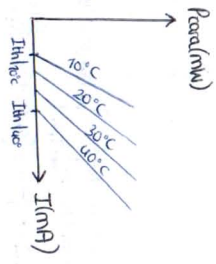 Pcara(mW)
10°C
20°C
30°C
40°C
Ith/10°C
Ith/40°
I(mA)